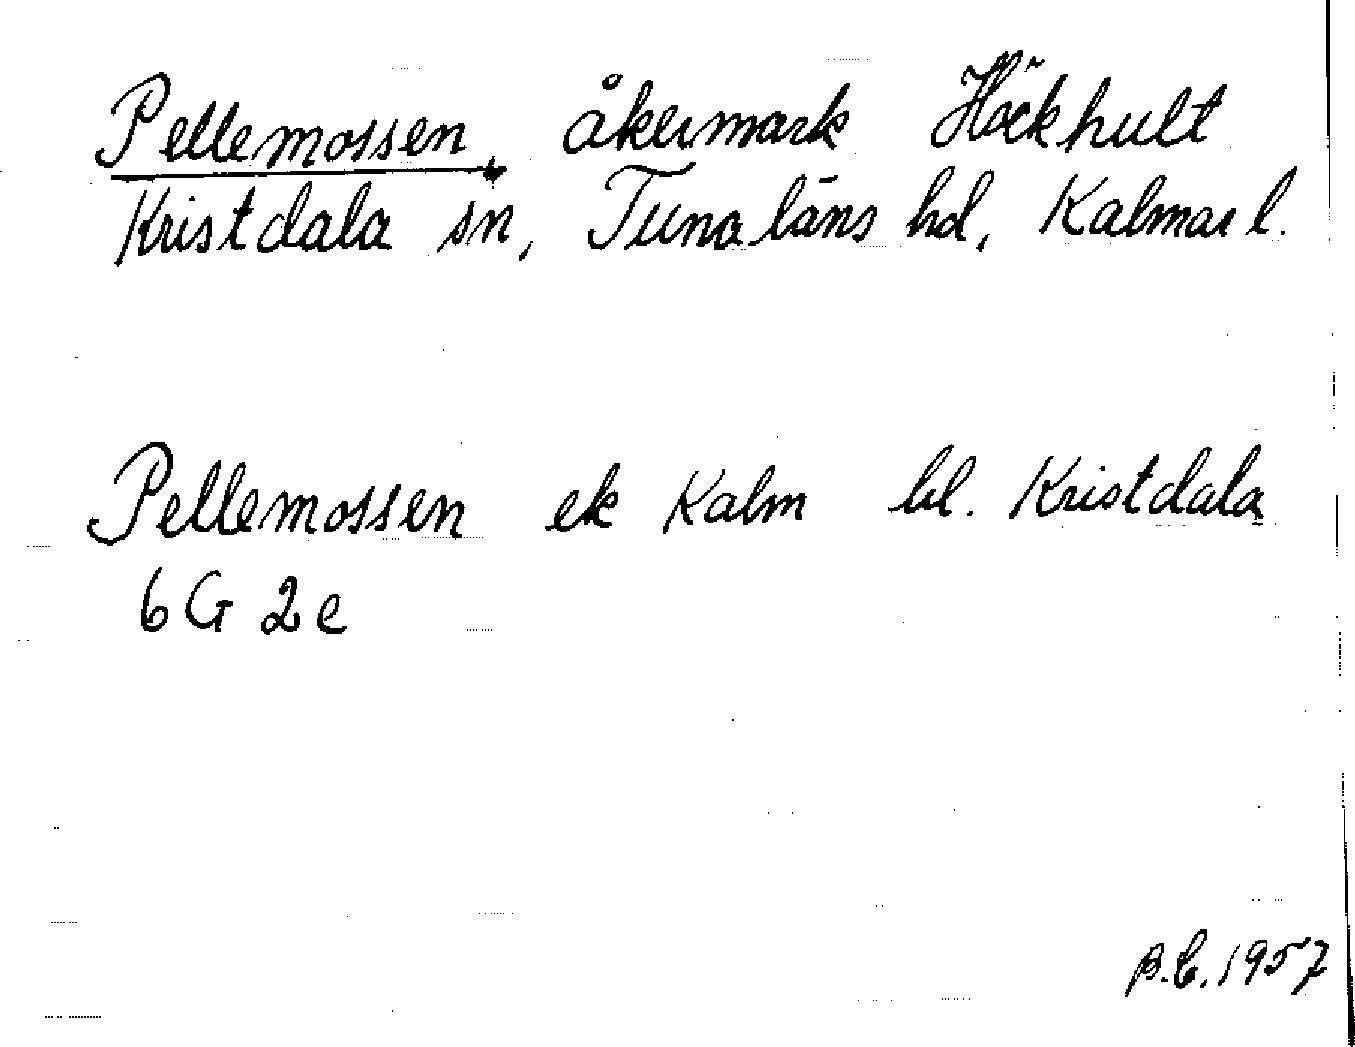 Pellemossen, åkermark Höckhult
Kristdala sn, Tunaläns hd, Kalmar l.
Pellemossen ek Kalm bl. Kristdala
6 G 2 e
B.C. 1957